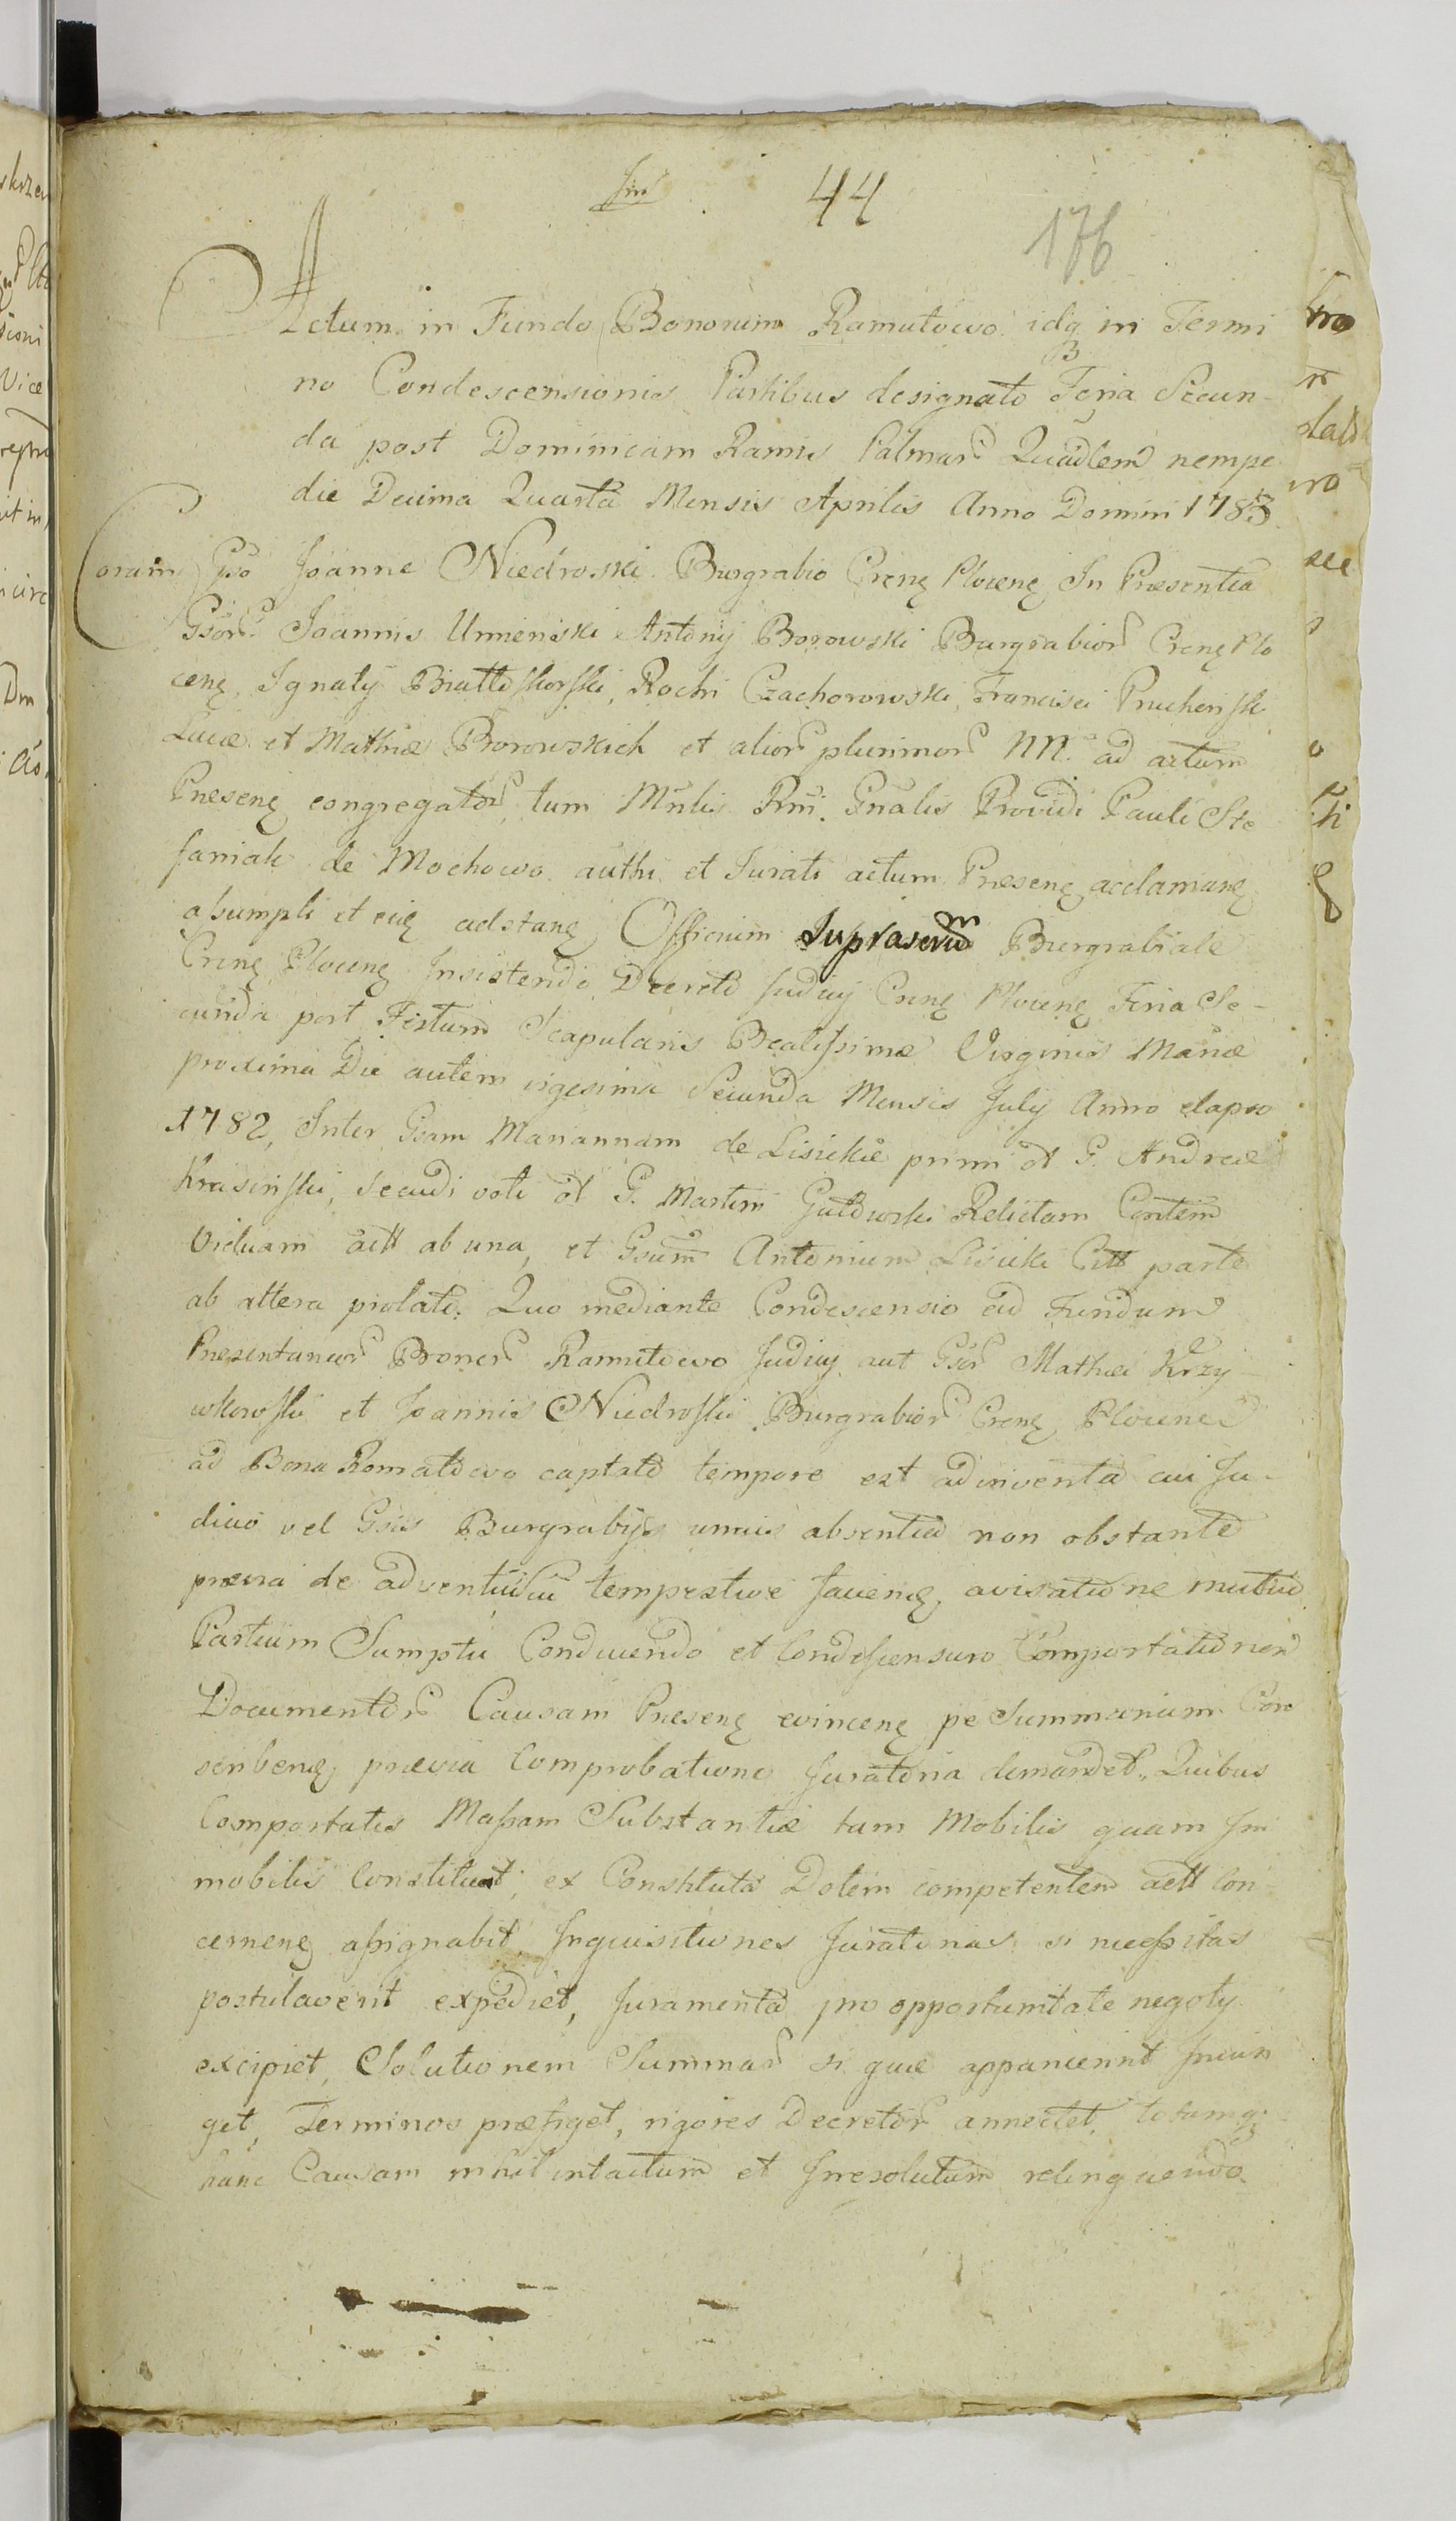 44
176
Actum in Fundo Bonorum Ramutowo idq in Termi
no Condescensionis Partibus designato Feria Secun-
da post Dominicam Ramis Palmar Quadlem nempe
die Decima Quarta Mensis Aprilis Anno Domini 1783
Coram Gso Joanne Niedroski Burgrabio Crenę Plocenę In Præsentia
Gsor Joannis Umienski Antonij Borowski Burgrabior Crenę Plo
cenę, Ignatij Białłoskorski, Rochi Czachorowski, Francisci
Lucæ et Mathiæ Borowskich et alior plurimor NN. ad actum
Præsenę congregator, tum Mnlis Rni Gnalis Providi Pauli Ste
faniak de Mochowo authi et Jurati actum Præsenę acclamanę
assumpti et adstanę Officium Suprascrm Burgrabiale
Crenę Plocenę Insistendo Decreto Judicij Crenę Plocenę Feria Se-
cunda post Festum Scapularis Beatissimæ Virginis Mariæ
proxima Die autem vigesima Secunda Mensis Julij Anno elapso
1782, Inter Gsam Mariannam de Lisickie primi ol G. Andreæ
Krasinski, Secudi voti ol G. Martini Gutowski Relictam
Viduam actt ab una, et Gsum Antonium Lisicki Citt parte
ab altera prolato. Quo mediante Condescensio ad Fundum
Præsentaneor Bonor Ramutowo Judicij aut Gsor Mathiæ Krzy-
wkowski et Joannis Niedroski Burgrabior Crenę Plocene
ad Bona Romatowo captato tempore est adinventa cui Ju-
dicio vel Gsis Burgrabijs unius absentia non obstante
prævia de adventu suo tempestive facienę, avisatione mutuo
Partium Sumptu Conducendo et Condescensuro Comportationem
Documentor Causam Præsenę evincenę pe Summarium Con
scribenę, prævia Comprobatione Juratoria demandet, Quibus
Comportatis Massam Substantiæ tam Mobilis quam Im
mobilis Constituet, ex Constituta Dotem competentem actt Con-
cernenę assignabit, Inquisitiones Juratorias si necessitas
postulaverit expediet, Juramenta pro opportunitate negotij
excipiet, Solutionem Summar si quæ apparuerint Injun
get, Terminos præfiget, rigores Decretor annectet, totamq
hanc Causam nihil intactum et Irresolutum relinquendo